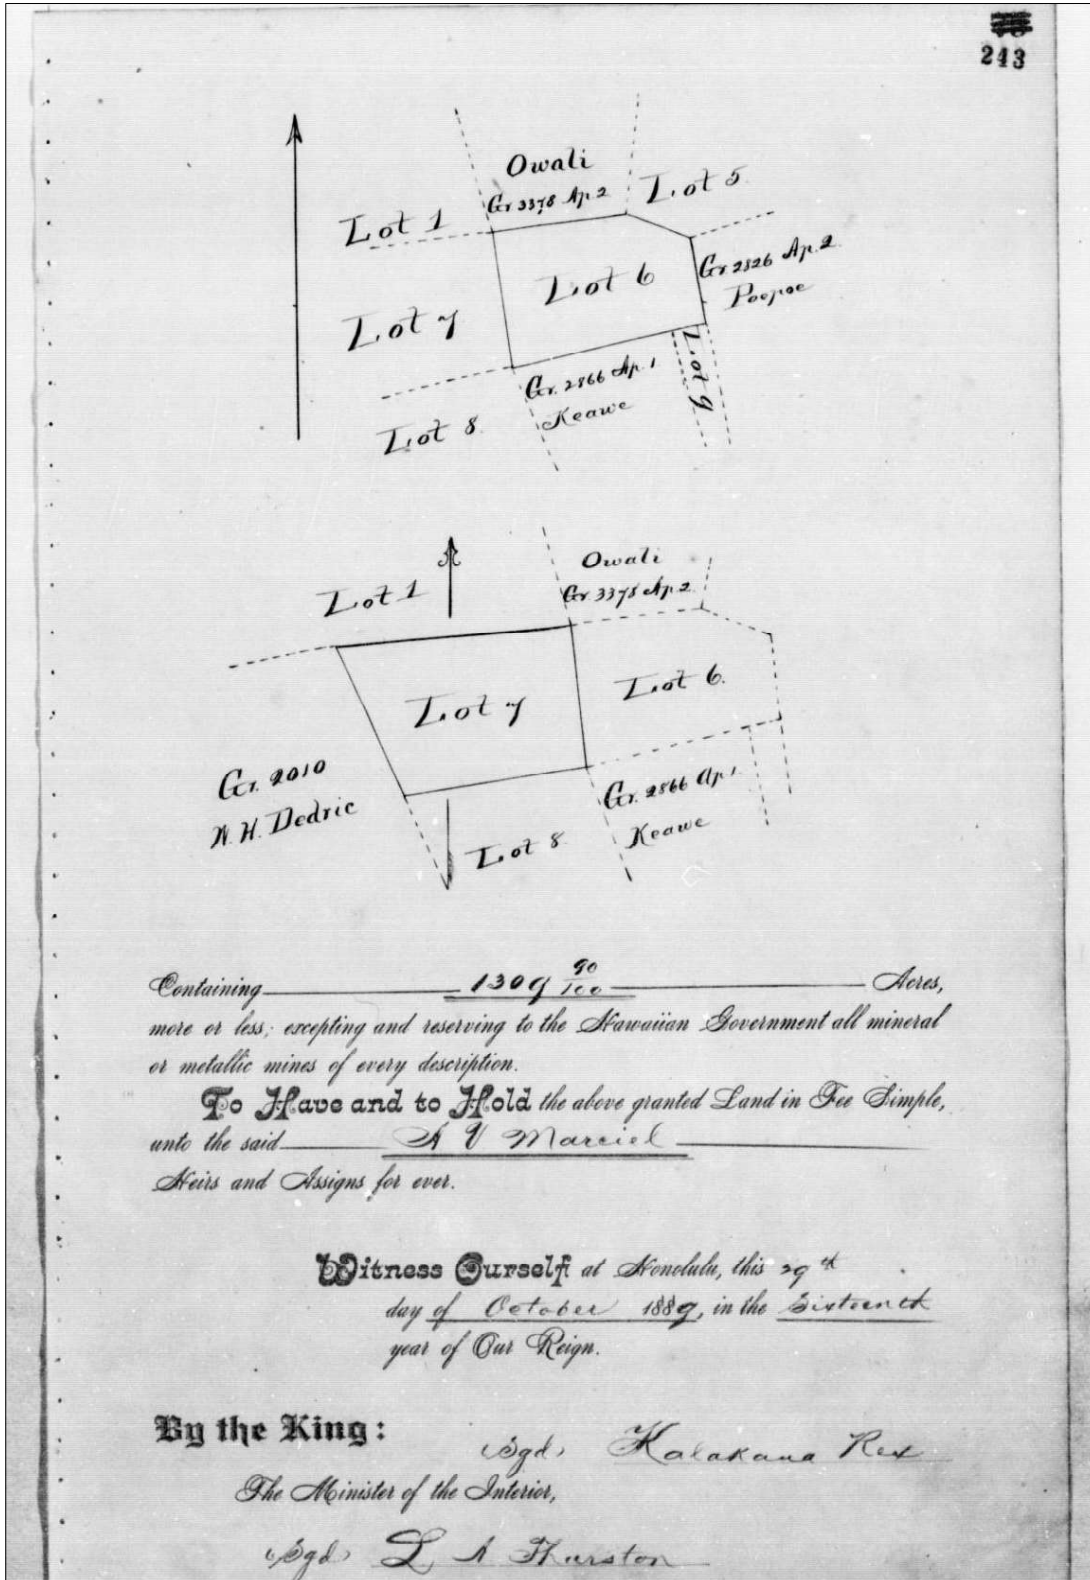 243
Owali
Gr 3378 Ap. 2
Lot 5
Lot 1
Gr 2826 Ap. 2.
Poepoe
Lot 6
Lot 7
Lot 9
Gr. 2866 Ap. 1
Keawe
Lot 8.
N
Owali
Gr. 3378 Ap. 2
Lot 1
Lot 6.
Lot 7
Gr. 2010
W. H. Dedric
Gr. 2866 Ap 1.
Keawe
Lot 8.
Containing 1309 90/100 Acres,
more or less; excepting and reserving to the Hawaiian Government all mineral
or metallic mines of every description.
To Have and to Hold the above granted Land in Fee Simple,
unto the said A V Marciel
Heirs and Assigns for ever.
Witness Ourself at Honolulu, this 29th
day of October 1889, in the Sixteenth
year of Our Reign.
By the King:
(Sgd) Kalakaua Rex
The Minister of the Interior,
(Sgd) L A Thurston